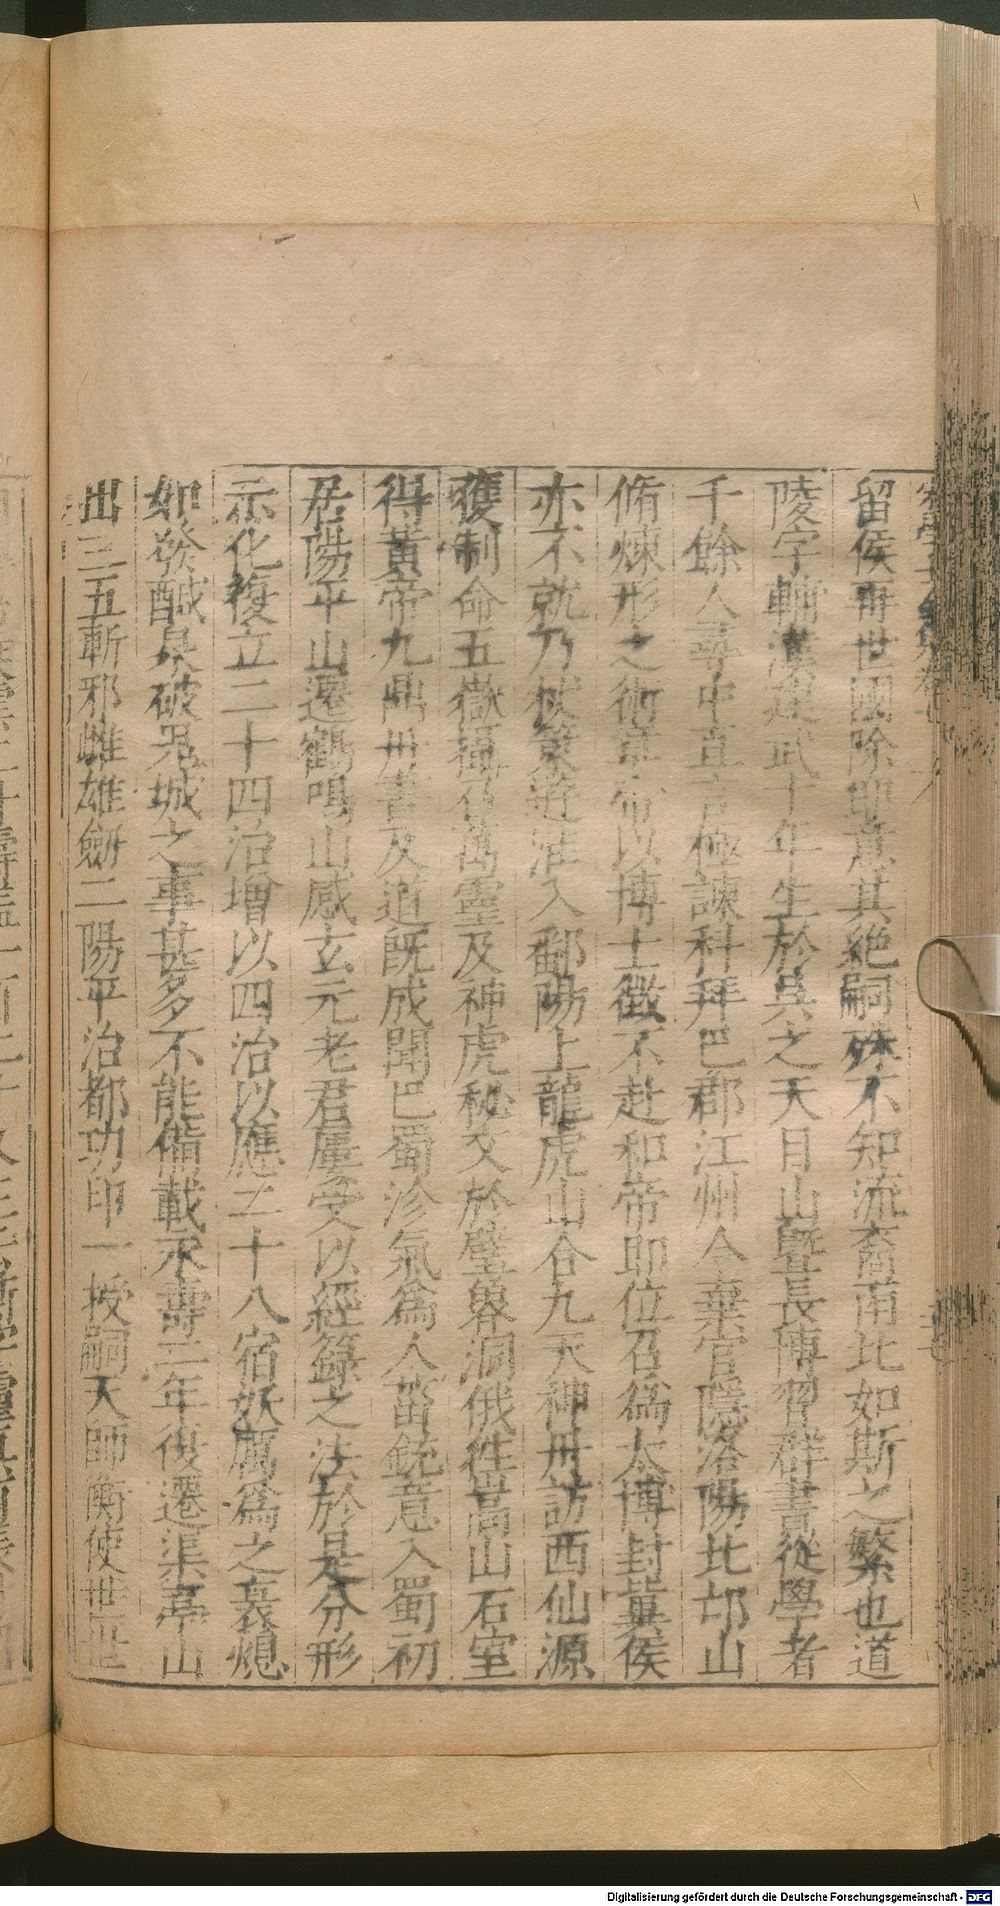 留侯再世國除即意其絶嗣殊不知流裔南北如斯之繁也道
陵字輔漢建武十年生於吳之天目山曁長博習群書從學者
千餘人尋中直言極諫科拜巴郡江州令棄官隱洛陽北邙山
脩煉形之術章帝以博士徵不赴和帝即位召爲太博封冀侯
亦不就乃杖策游淮入鄱陽上龍虎山合九天神丹訪西仙源
獲制命五嶽攝召萬靈及神虎秘文於壁魯洞俄徃嵩山石室
得黃帝九鼎丹書及道旣成聞巴蜀沴氣爲人菑銳意入蜀初
居陽平山遷鶴鳴山感玄元老君屢受以經籙之法於是分形
示化復立二十四治增以四治以應二十八宿妖厲爲之衰熄
如發醎泉破鬼城之事甚多不能備載永壽二年復遷渠亭山
出三五斬邪雌雄劒二陽平治都功印一授嗣天師衡使世世
Digitalisierung gefördert durch die Deutsche Forschungsgemeinschaft - DFG